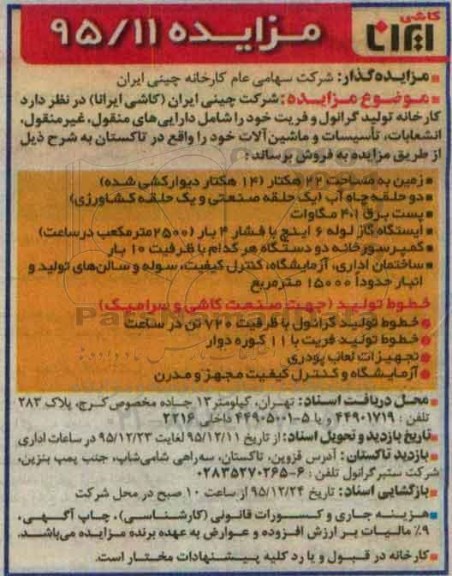 کاشی
ایرانا
مزایده ۹۵/۱۱
مزایده‌گذار: شرکت سهامی عام کارخانه چینی ایران
موضوع مزایده: شرکت چینی ایران (کاشی ایرانا) در نظر دارد
کارخانه تولید گرانول و فریت خود را شامل دارایی‌های منقول، غیرمنقول،
انشعابات، تأسیسات و ماشین‌آلات خود را واقع در تاکستان به شرح ذیل
از طریق مزایده به فروش برساند:
زمین به مساحت ۲۲ هکتار (۱۴ هکتار دیوارکشی شده)
دو حلقه چاه آب (یک حلقه صنعتی و یک حلقه کشاورزی)
پست برق ۴۰۱ مگاوات
ایستگاه گاز لوله ۶ اینچ با فشار ۴ بار (۲۵۰۰ مترمکعب در ساعت)
کمپرسورخانه دو دستگاه هر کدام با ظرفیت ۱۰ بار
ساختمان اداری، آزمایشگاه، کنترل کیفیت، سوله و سالن‌های تولید و
انبار حدوداً ۱۵۰۰۰ مترمربع
خطوط تولید (جهت صنعت کاشی و سرامیک)
خطوط تولید گرانول با ظرفیت ۷۲۰ تن در ساعت
خطوط تولید فریت با ۱۱ کوره دوار
تجهیزات لعاب پودری
آزمایشگاه و کنترل کیفیت مجهز و مدرن
محل دریافت اسناد: تهران، کیلومتر ۱۳ جاده مخصوص کرج، پلاک ۲۸۳
تلفن: ۴۴۹۰۱۷۱۹ و یا ۵-۴۴۹۰۵۰۰۱ داخلی ۲۲۱۶
تاریخ بازدید و تحویل اسناد: از تاریخ ۹۵/۱۲/۱۱ لغایت ۹۵/۱۲/۲۳ در ساعات اداری
بازدید تاکستان: آدرس قزوین، تاکستان، سه‌راهی شامی‌شاپ، جنب پمپ بنزین،
شرکت ستبر گرانول تلفن: ۶-۰۲۸۳۵۲۷۰۲۶۵
بازگشایی اسناد: تاریخ ۹۵/۱۲/۲۴ از ساعت ۱۰ صبح در محل شرکت
هزینه جاری و کسورات قانونی (کارشناسی)، چاپ آگهی،
۹٪ مالیات بر ارزش افزوده و عوارض به عهده برنده مزایده می‌باشد.
کارخانه در قبول و یا رد کلیه پیشنهادات مختار است.